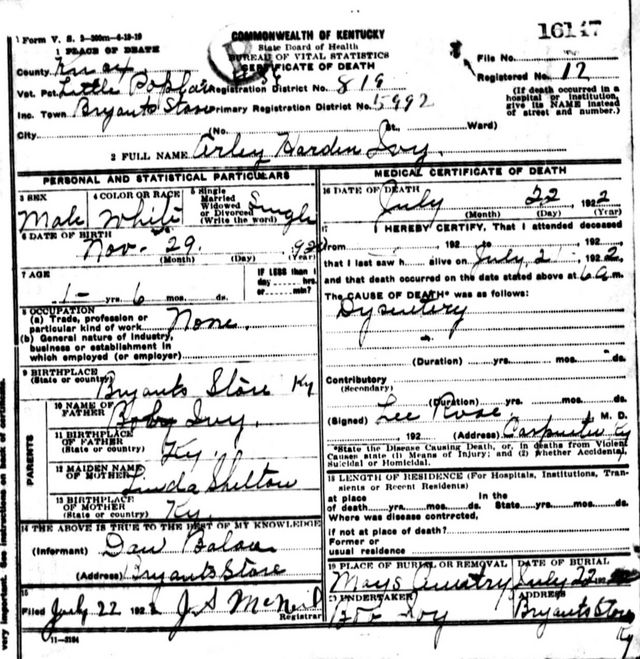 Form V. S. 2-200m-6-19-19
COMMONWEALTH OF KENTUCKY
State Board of Health
BUREAU OF VITAL STATISTICS
CERTIFICATE OF DEATH
16147
File No.
Registered No. 12
(If death occurred in a hospital or institution, give its NAME instead of street and number.)
1 PLACE OF DEATH
County Knox
Vot. Pct. Little Poplar Registration District No. 819
Inc. Town Bryants Store Primary Registration District No. 5992
City (No. St. Ward)
2 FULL NAME Arley Hardin Ivy.
PERSONAL AND STATISTICAL PARTICULARS
3 SEX
Male
4 COLOR OR RACE
White
5 Single
Married
Widowed
or Divorced
(Write the word)
Single
6 DATE OF BIRTH
Nov- 29. 1920
(Month) (Day) (Year)
7 AGE
IF LESS than 1
day hrs.
or min?
1 - yrs. 6 mos. ds.
8 OCCUPATION
(a) Trade, profession or
particular kind of work None.
(b) General nature of industry,
business or establishment in
which employed (or employer)
9 BIRTHPLACE
(State or country) Bryants Store Ky
PARENTS
10 NAME OF
FATHER Ivy.
11 BIRTHPLACE
OF FATHER
(State or country) Ky.
12 MAIDEN NAME
OF MOTHER Linda Shelton
13 BIRTHPLACE
OF MOTHER
(State or country) Ky.
14 THE ABOVE IS TRUE TO THE BEST OF MY KNOWLEDGE
(Informant) Dan
(Address) Bryants Store
15
Filed July 22 192 2 J S McNeil
Registrar
11-3184
MEDICAL CERTIFICATE OF DEATH
16 DATE OF DEATH
July 22 192 2
(Month) (Day) (Year)
17 I HEREBY CERTIFY, That I attended deceased
from 192 to 192
that I last saw h alive on July 21 192 2
and that death occurred on the date stated above at 6 a m.
The CAUSE OF DEATH* was as follows:
Dysentery
(Duration) yrs. mos. ds.
Contributory
(Secondary)
(Duration) yrs. mos. ds.
(Signed) Lee Rose M. D.
192 (Address) Carpenter Ky
*State the Disease Causing Death, or, in deaths from Violent
Causes state (1) Means of Injury; and (2) whether Accidental,
Suicidal or Homicidal.
18 LENGTH OF RESIDENCE (For Hospitals, Institutions, Tran-
sients or Recent Residents)
at place In the
of death yrs. mos. ds. State yrs. mos. ds.
Where was disease contrrcted,
if not at place of death?
Former or
usual residence
19 PLACE OF BURIAL OR REMOVAL
Mays
DATE OF BURIAL
July 22 192
20 UNDERTAKER
Ivy
ADDRESS
Bryants Store
Ky
very important. See instructions on back of certificate.